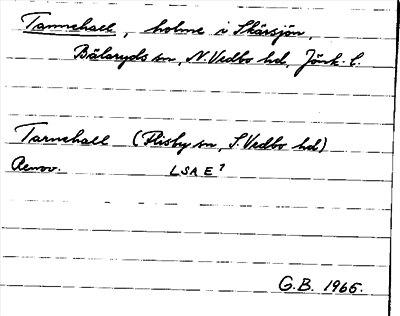 Tarnehall, holme i Skärsjön,
Bälaryds sn, N. Vedbo hd, Jönk. l.
Tarnehall (Flisby sn, S. Vedbo hd)
Renov. LSA E⁷
G.B. 1965.